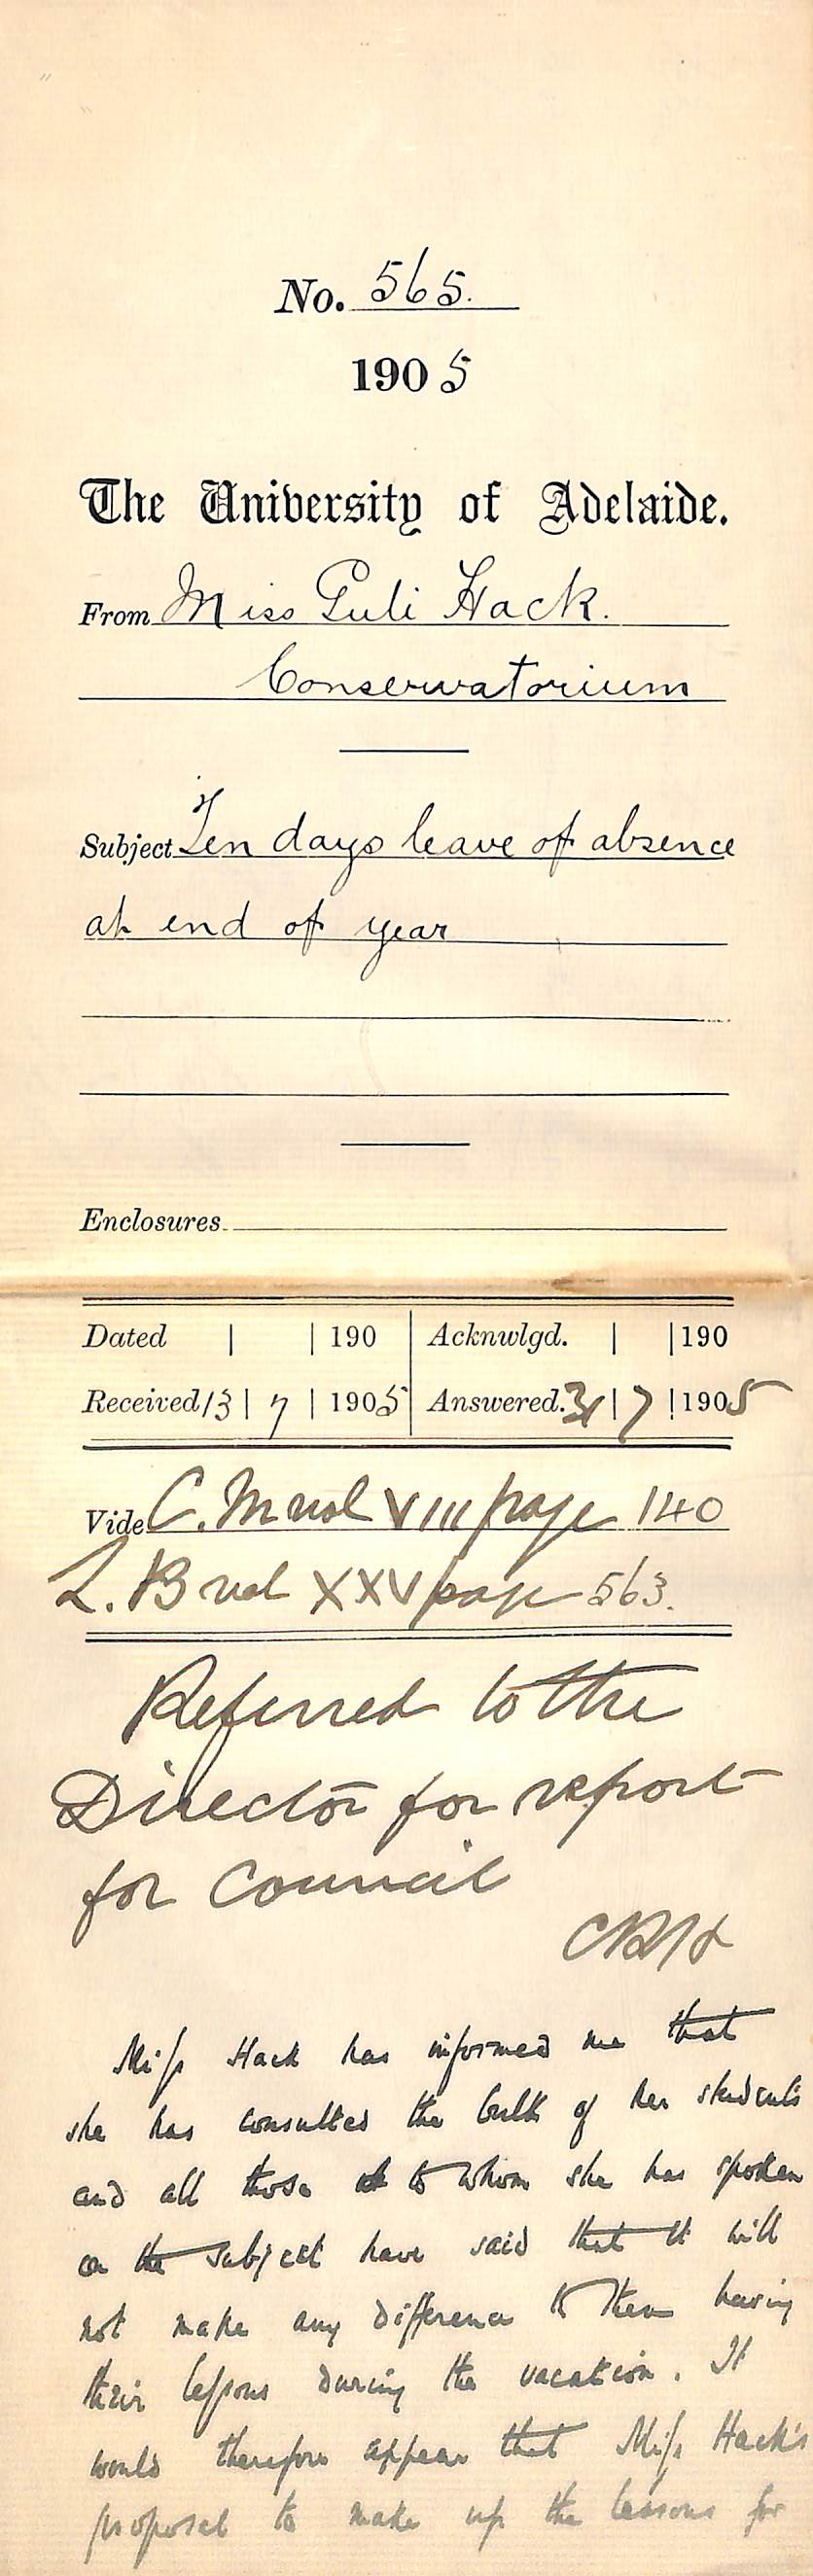 No. 565.
1905
The University of Adelaide.
From Miss Guli Hack.
Conservatorium
Subject Ten days leave of absence
at end of year
Enclosures
Dated | | 190 | Acknwlgd. | | 190
Received 13 | 7 | 1905 | Answered. 31 | 7 | 1905
Vide C. M vol VIII page 140
L. B vol XXV page 563.
Referred to the
Director for report
for Council
Miss Hack has informed me that
she has consulted the bulk of her students
and all those to whom she has spoken
on the subject have said that it will
not make any difference to them having
their lessons during the vacation. It
would therefore appear that Miss Hack's
proposal to make up the lessons for